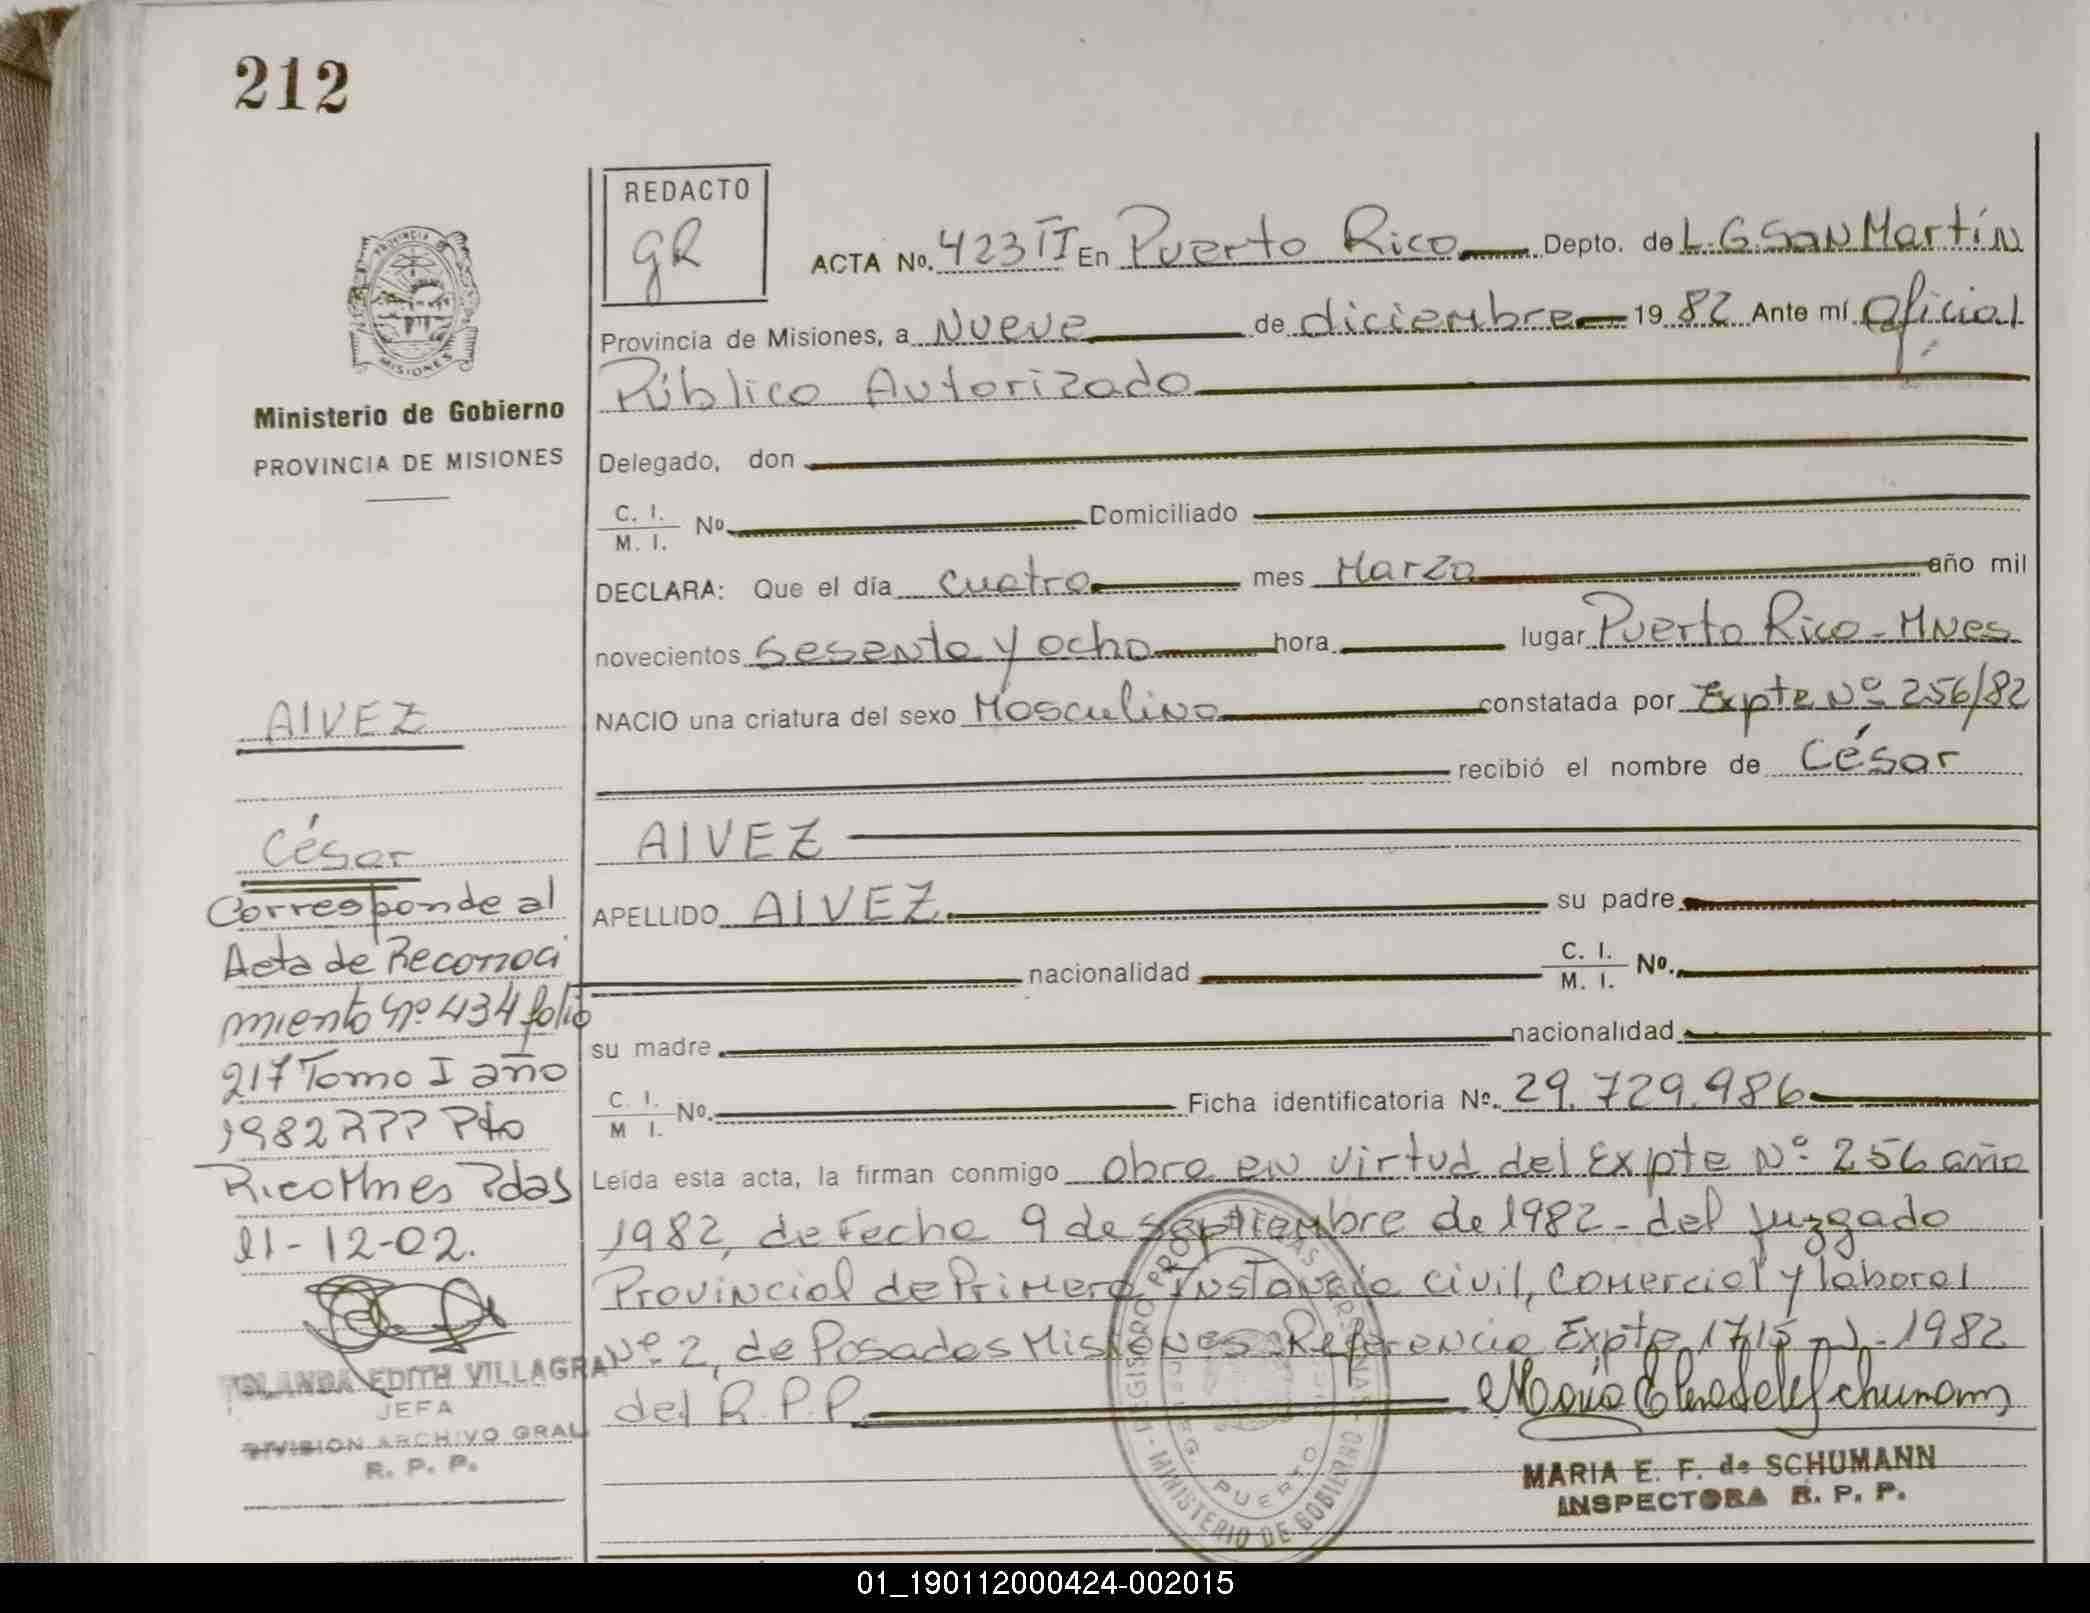 212
REDACTO
gR
ACTA No. 423 II En Puerto Rico Depto. de L. G. San Martín
Provincia de Misiones, a Nueve de diciembre 19 82 Ante mí Oficial
Público Autorizado
Delegado, don
C. I.
M. I. No. Domiciliado
DECLARA: Que el día cuatro mes Marzo año mil
novecientos sesenta y ocho hora lugar Puerto Rico - Mnes
NACIO una criatura del sexo Masculino constatada por Expte Nº 256/82
recibió el nombre de César
AlVEZ
APELLIDO AlVEZ su padre
nacionalidad C. I.
M. I. No.
su madre nacionalidad
C. I.
M I. No. Ficha identificatoria Nº. 29.729.986
Leída esta acta, la firman conmigo obra en virtud del Expte Nº 256 año
1982, de Fecha 9 de septiembre de 1982 - del Juzgado
Provincial de Primera Instancia Civil, Comercial y laboral
Nº 2, de Posadas Misiones Referencia Expte 1715 1982
del R.P.P.
MARIA E. F. de SCHUMANN
INSPECTORA R. P. P.
PROVINCIA DE
MISIONES
Ministerio de Gobierno
PROVINCIA DE MISIONES
AlVEZ
César
Corresponde al
Acta de Reconoci
miento Nº 434 folio
217 Tomo I año
1982 RPP Pto
Rico Mnes Pdas
11-12-02.
YOLANDA EDITH VILLAGRA
JEFA
DIVISION ARCHIVO GRAL
R. P. P.
MINISTERIO DE GOBIERNO
PUERTO
01_190112000424-002015